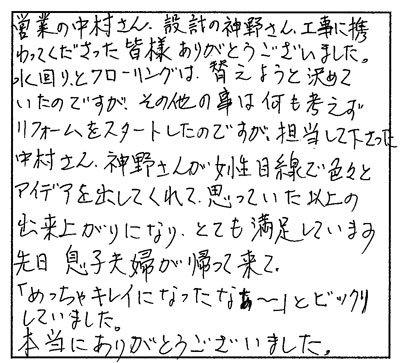 営業の中村さん、設計の神野さん、工事に携
わってくださった皆様ありがとうございました。
水回りとフローリングは、替えようと決めて
いたのですが、その他の事は何も考えず
リフォームをスタートしたのですが、担当して下さった
中村さん、神野さんが女性目線で色々と
アイデアを出してくれて、思っていた以上の
出来上がりになり、とても満足しています
先日 息子夫婦が帰って来て、
「めっちゃキレイになったなぁ〜」とビックリ
していました。
本当にありがとうございました。